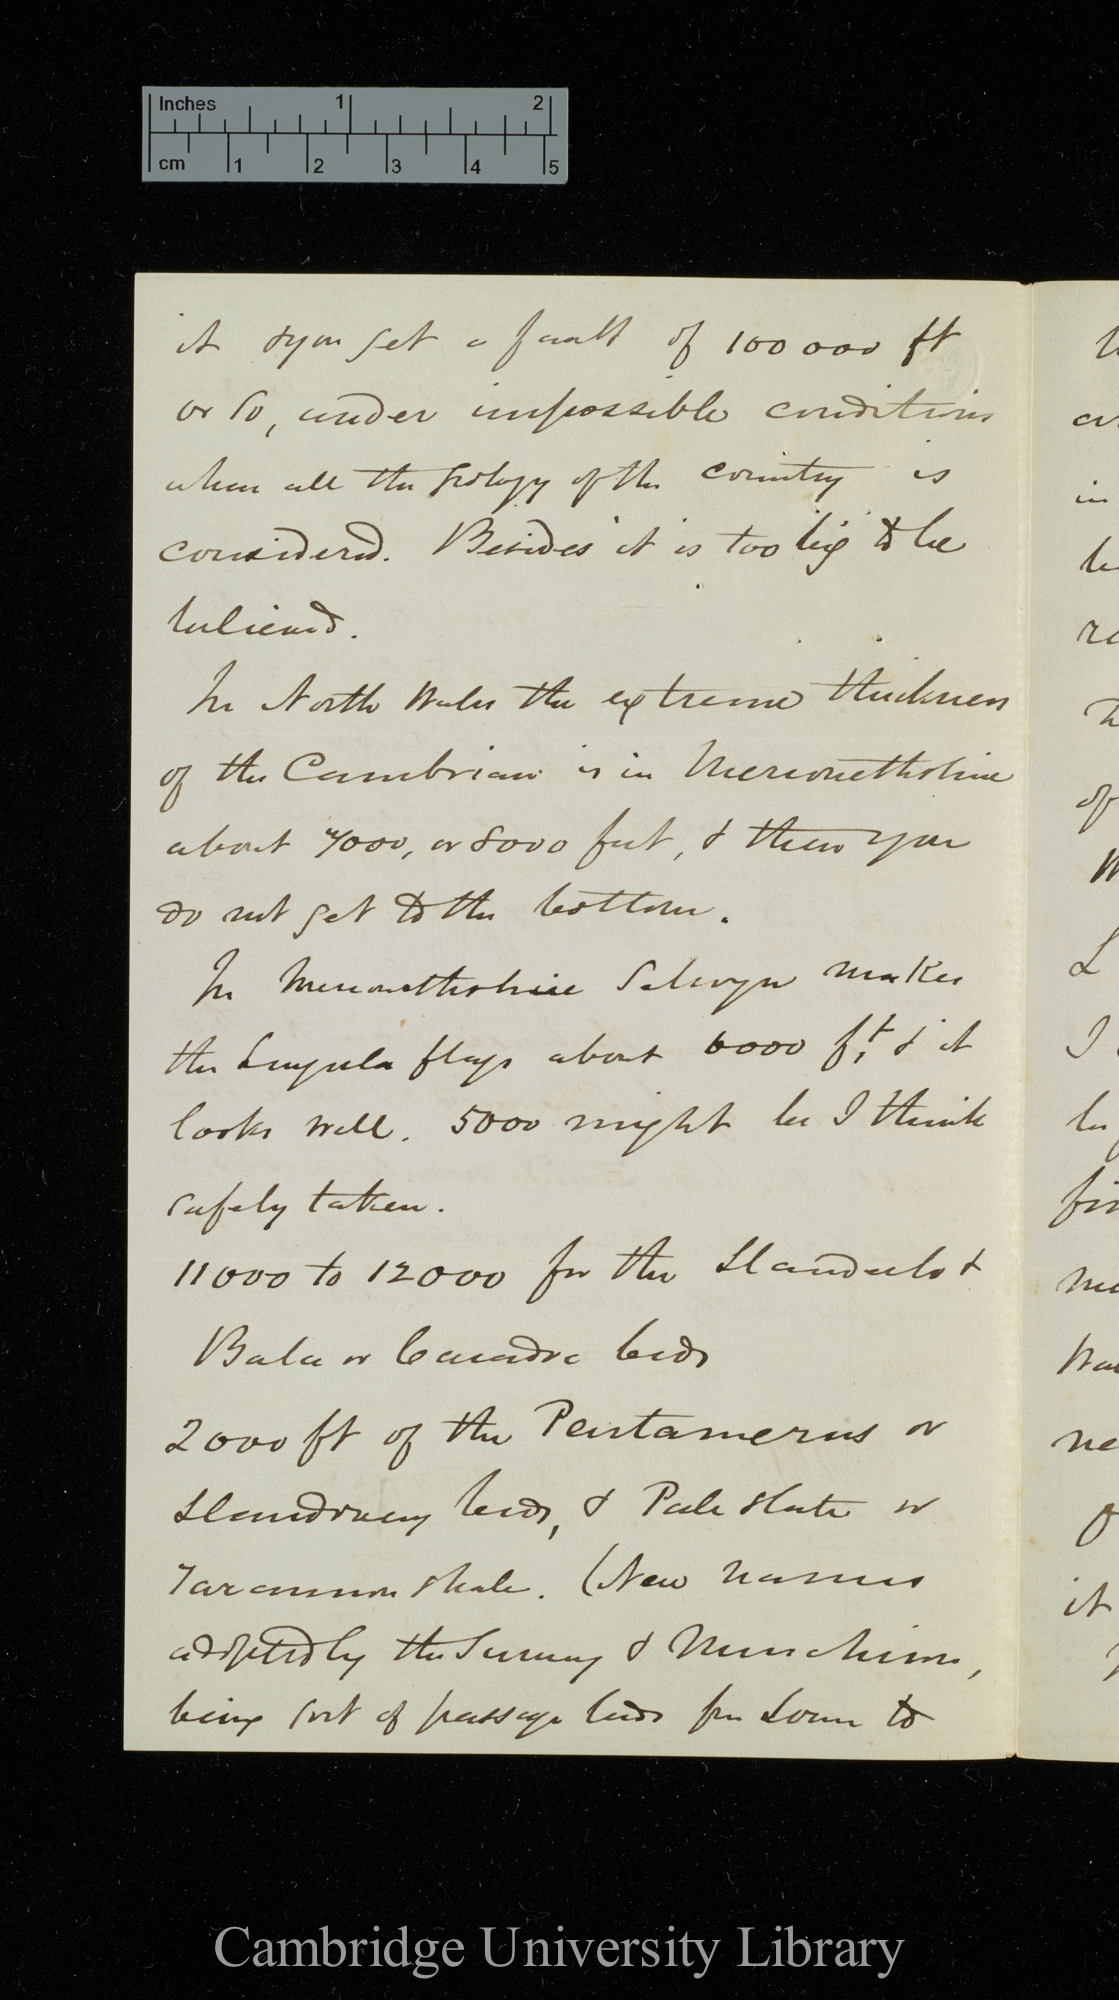 Inches 1 2
cm 1 2 3 4 5
it & you get a fault of 100 000 ft
or so, under impossible conditions
when all the geology of the country is
considered. Besides it is too big to be
believed.
In North Wales the extreme thickness
of the Cambrian is in Merionethshire
about 7000, or 8000 feet, & then you
do not get to the bottom.
In Merionethshire Selwyn makes
the Lingula flags about 6000 ft. & it
looks well. 5000 might be I think
safely taken.
11000 to 12000 for the Llandeilo &
Bala or Caradoc beds
2000 ft of the Pentamerus or
Llandovery beds, & Pale slate or
Tarannon shale. (New names
adopted by the Survey & Murchison,
being sort of passage beds from Lower to
Cambridge University Library